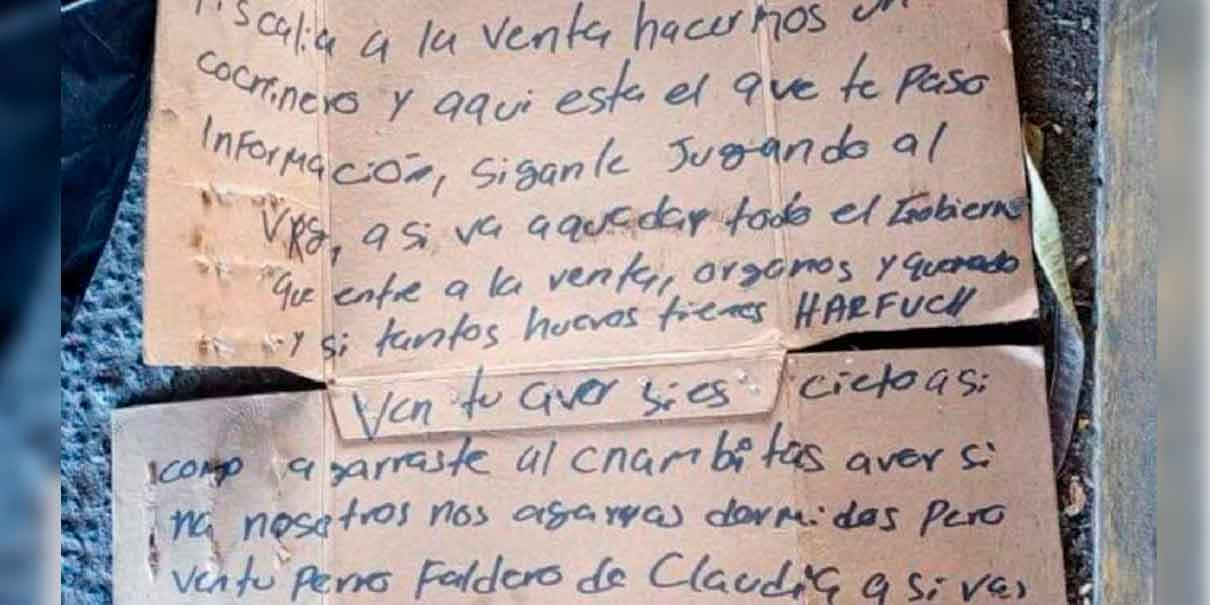 Fiscalia a la venta hacermos un
cocrinero y aqui esta el que te paso
Información, siganle Jugando al
Vrg, asi va aquedar todo el Gobierno
que entre a la venta, organos y quemado
y si tantos huevos tienes HARFUCH
Ven tu aver si es cieto asi
como agarraste al chambitas aver si
na nosotros nos agarras dormidos Pero
ven tu Perro Faldero de Claudia asi vas